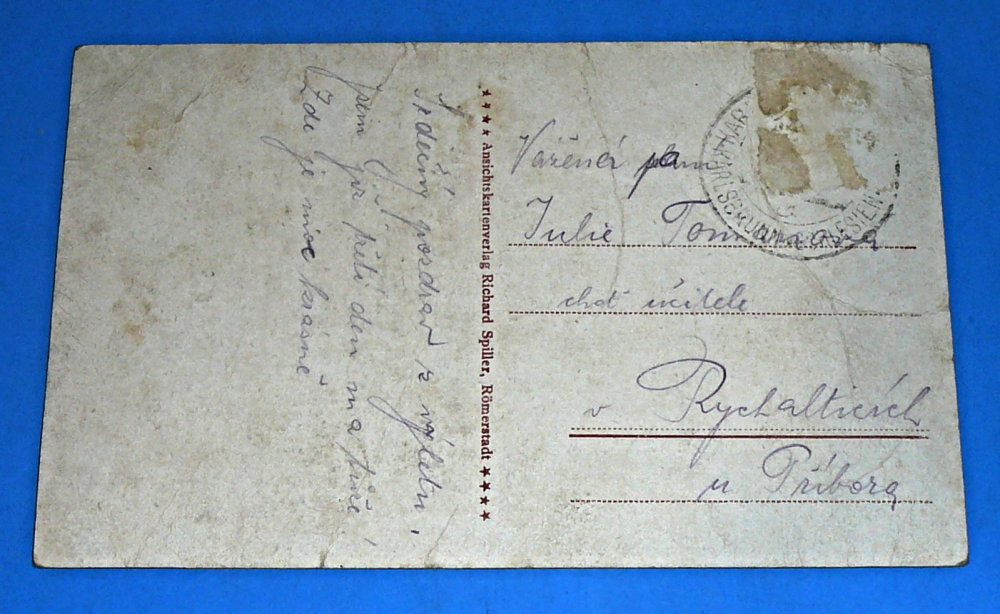 Srdečný pozdrav z výletu,
Jsem již třetí den na túře!
Zde je moc krásně
★ ★ ★ ★ Ansichtskartenverlag Richard Spiller, Römerstadt ★ ★ ★ ★
Vážená paní
Julie
choť učitele
v Rychalticích
u Příbora